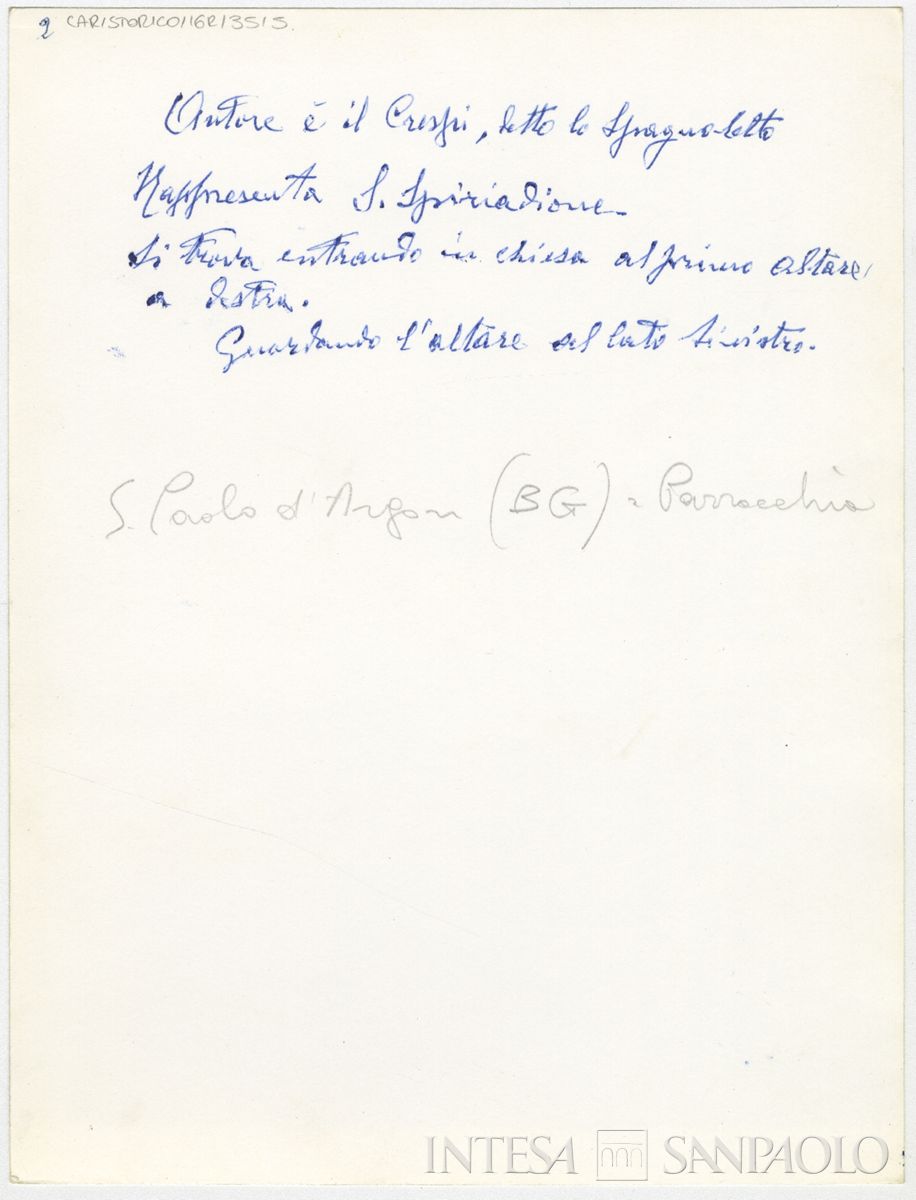 2 CARISTORICO116R13515.
Autore è il Crespi, detto lo Spagnoletto
Rappresenta S. Spiriadione.
Si trova entrando in chiesa al primo altare,
a destra.
Guardando l'altare al lato sinistro.
S. Paolo d'Argon (BG) = Parrocchia
INTESA SANPAOLO